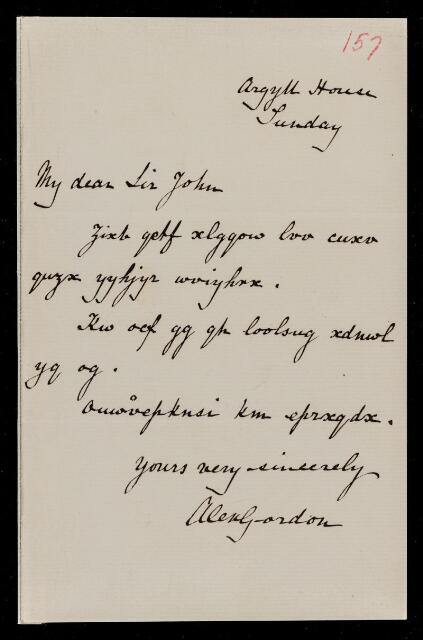 157
Argyll House
Sunday
My dear Sir John
Zixt getf xlgqow lvv cuxv
quzx yyhjyr wviyhrx.
Kw oef gg qh loolsug xdnwl
yq og.
owwåvepknsi km eprxqdx.
Yours very sincerely
Alex Gordon